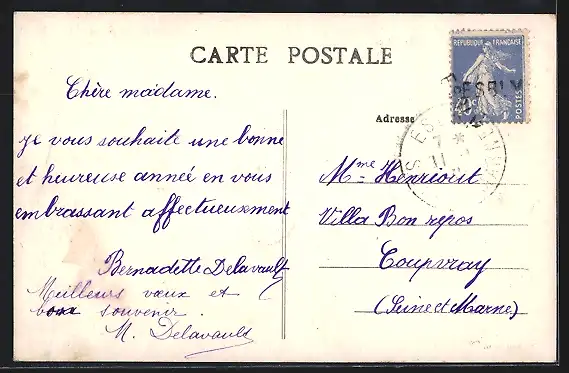 CARTE POSTALE
REPUBLIQUE FRANÇAISE
POSTES
40c
ESBLY
Adresse
Chère madame.
Je vous souhaite une bonne
et heureuse année en vous
embrassant affectueusement
Bernadette Delavault
Meilleurs vœux et
bon souvenir.
M. Delavault
Mme Henriout
Villa Bon repos
Coupvray
(Seine et Marne)